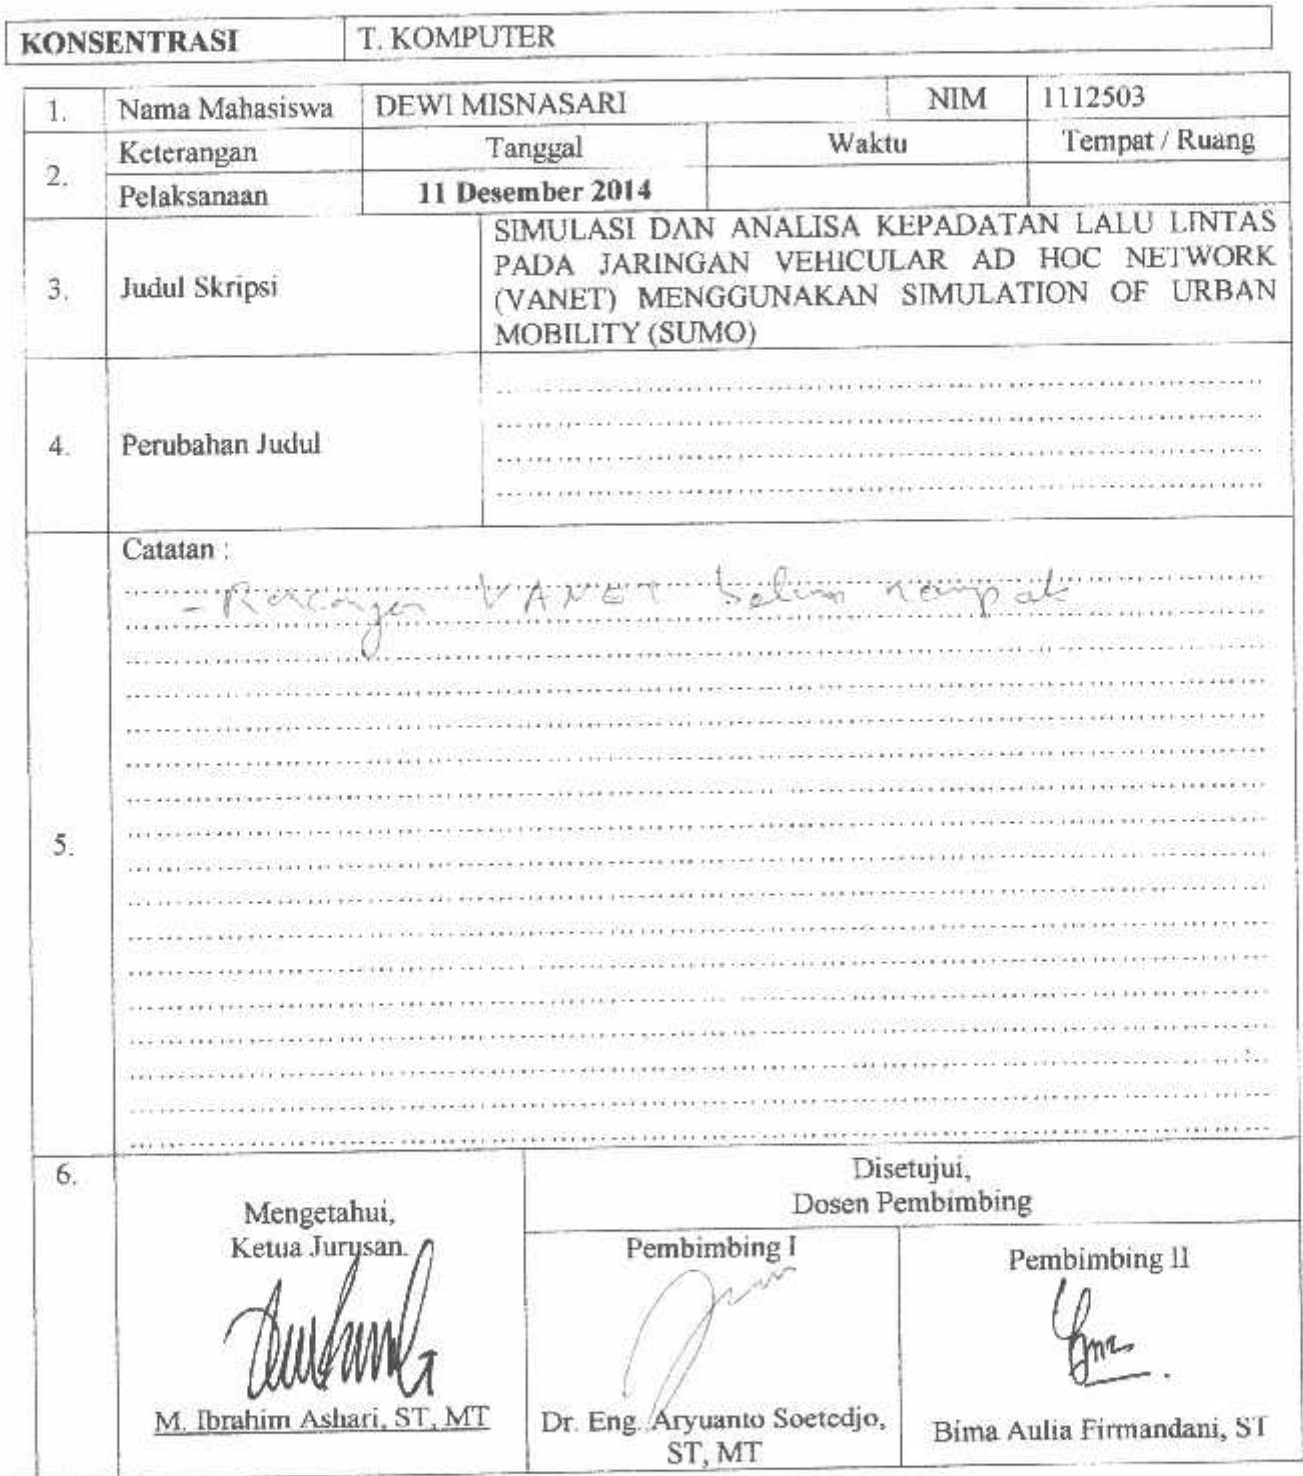 KONSENTRASI T. KOMPUTER
1. Nama Mahasiswa DEWI MISNASARI NIM 1112503
2. Keterangan Tanggal Waktu Tempat / Ruang
Pelaksanaan 11 Desember 2014
3. Judul Skripsi
SIMULASI DAN ANALISA KEPADATAN LALU LINTAS
PADA JARINGAN VEHICULAR AD HOC NETWORK
(VANET) MENGGUNAKAN SIMULATION OF URBAN
MOBILITY (SUMO)
4. Perubahan Judul
5. Catatan :
- Rancangan VANET belum nampak
6.
Mengetahui,
Ketua Jurusan
M. Ibrahim Ashari, ST, MT
Disetujui,
Dosen Pembimbing
Pembimbing I
Dr. Eng. Aryuanto Soetedjo,
ST, MT
Pembimbing II
Bima Aulia Firmandani, ST